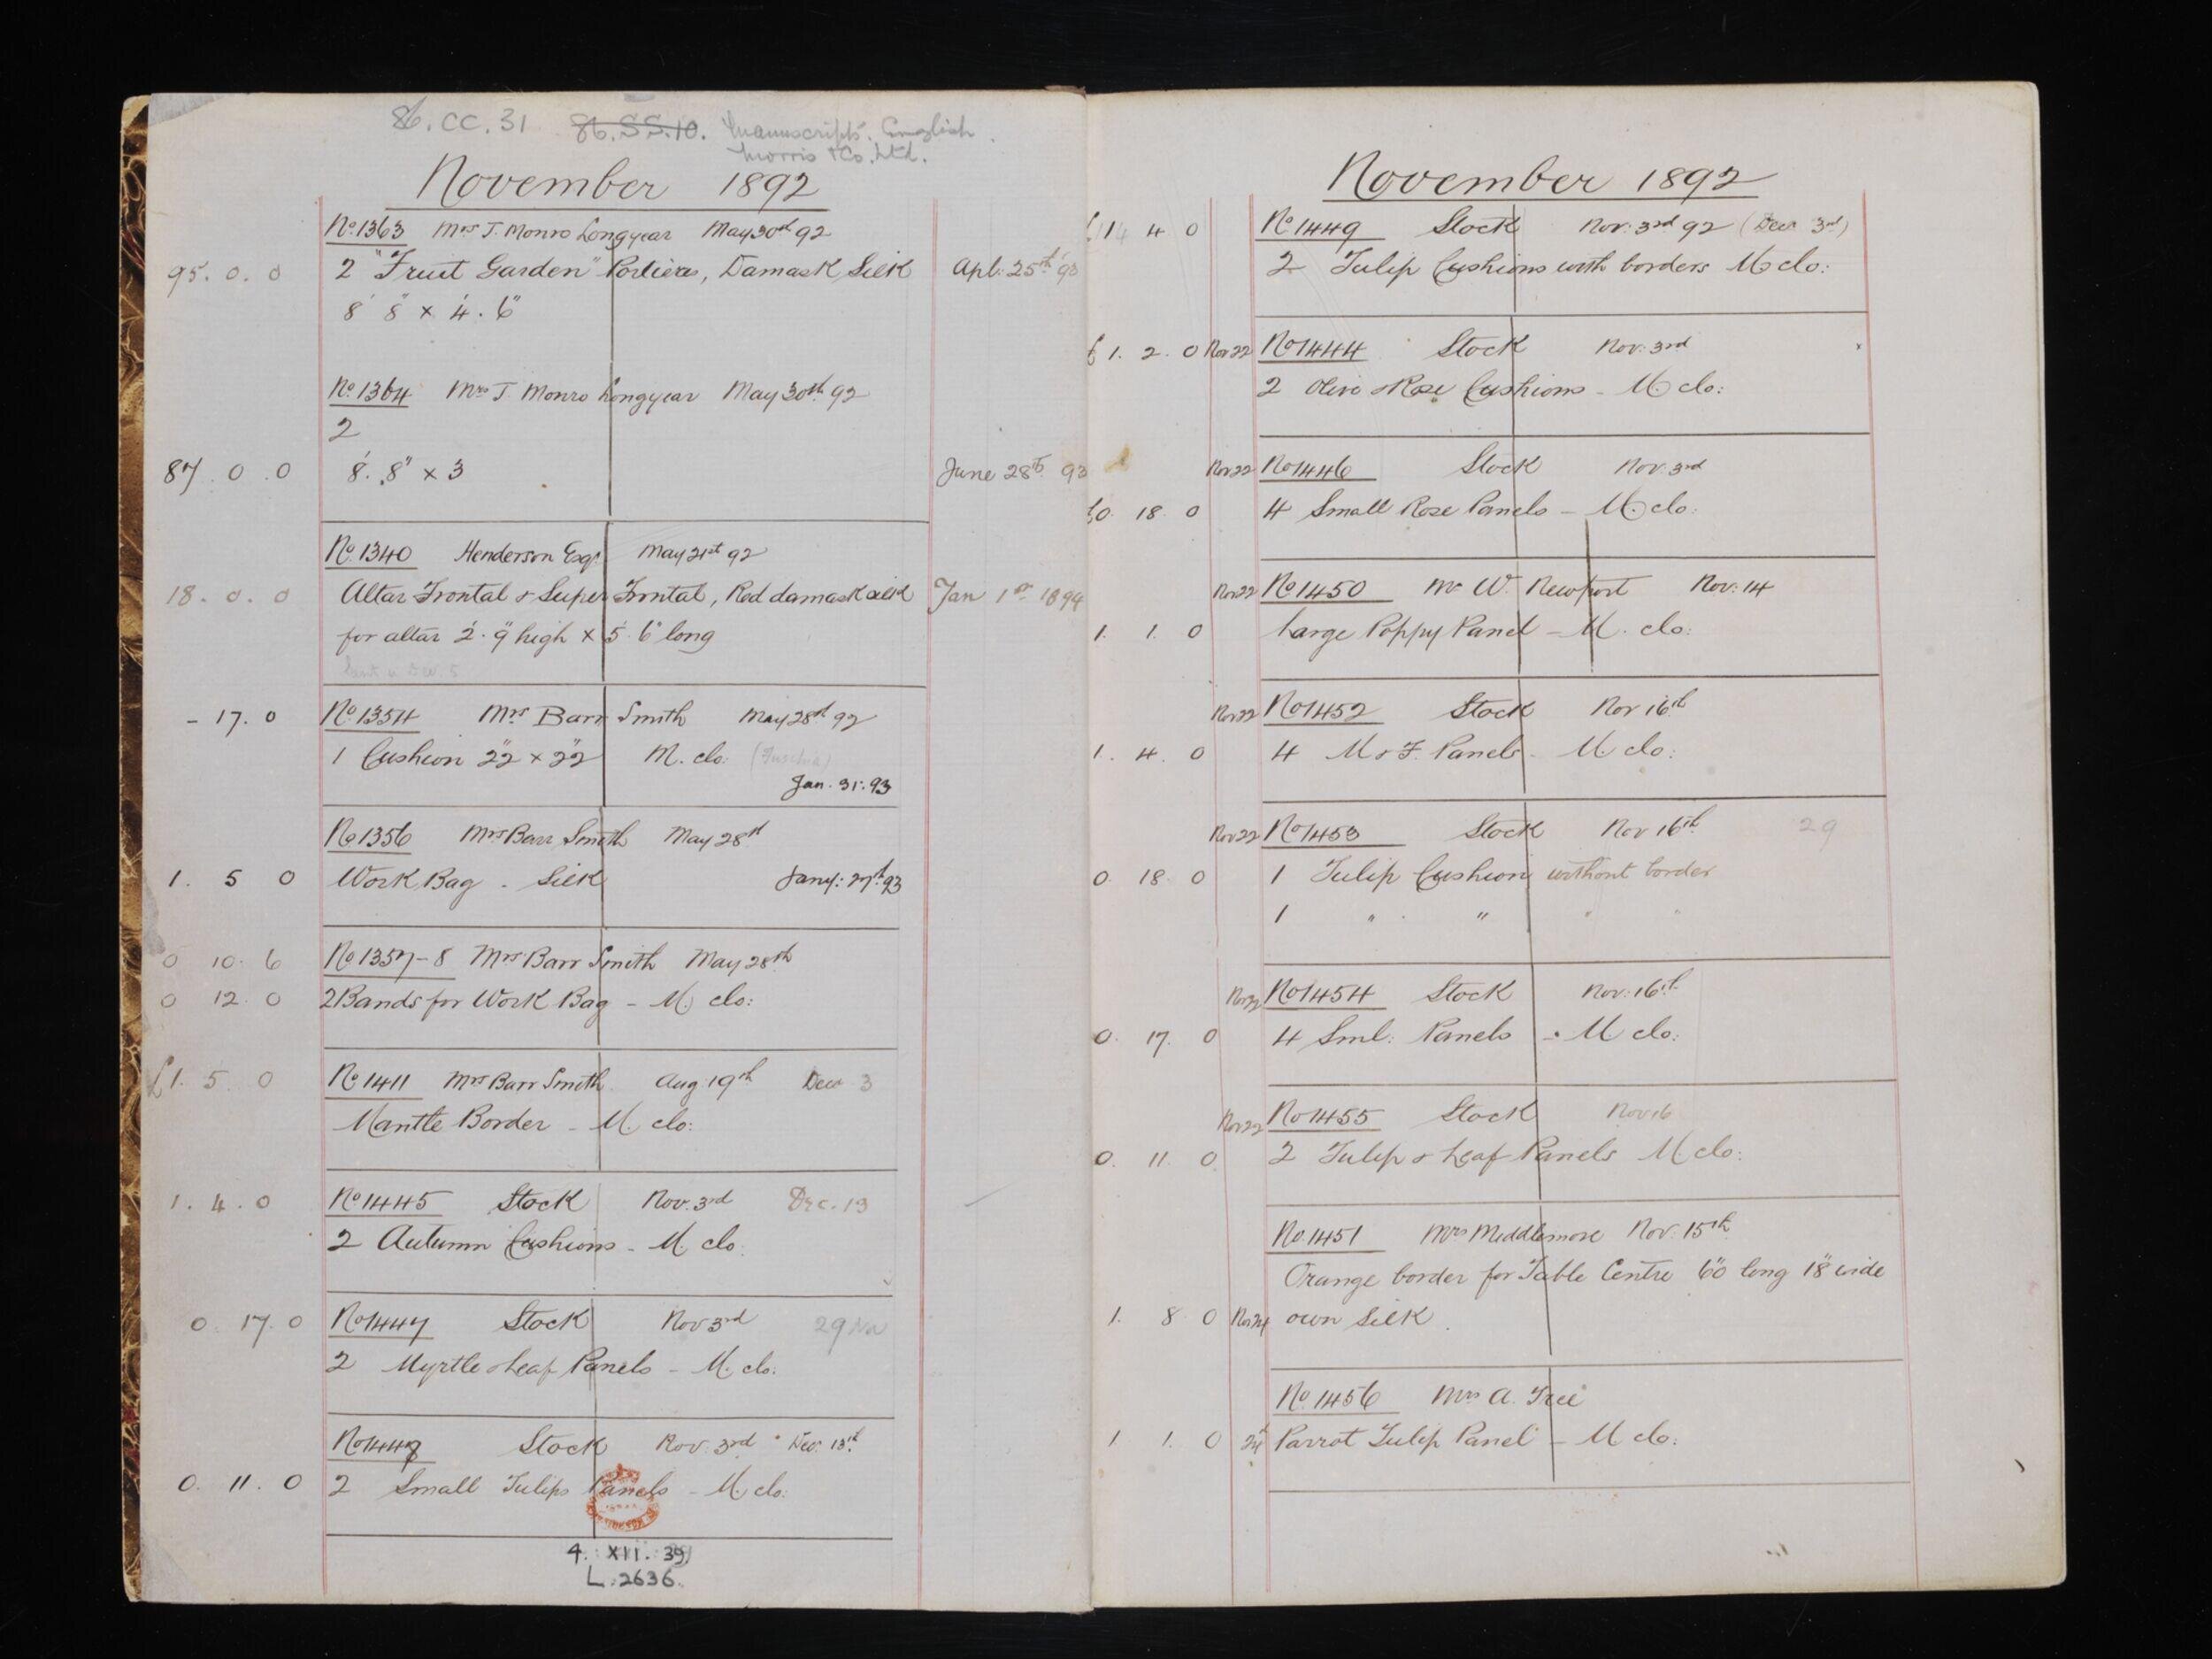 86.CC.31 86.SS.10. Manuscripts. English.
Morris & Co. Ltd.
November 1892
No. 1363 Mrs J. Monro Longyear May 30th 92
95. 0. 0 2 "Fruit Garden" Portieres, Damask Silk Apl. 25th 93
8' 8" x 4'. 6"
No. 1364 Mrs J. Monro Longyear May 30th 92
2
87. 0. 0 8'. 8" x 3 June 28th 93
No. 1340 Henderson Esqr May 21st 92
18. 0. 0 Altar Frontal & Super Frontal, Red damask silk Jan 1st 1894
for altar 2'. 9" high x 5' 6" long
- 17. 0 No. 1354 Mrs Barr Smith May 28th 92
1 Cushion 22" x 22" M. clo: (Fuschia)
Jan. 31. 93
No 1356 Mrs Barr Smith May 28th
1. 5 0 Work Bag. Silk Jany: 27th 93
0 10. 6 No 1357-8 Mrs Barr Smith May 28th
0 12. 0 2 Bands for Work Bag - M clo:
£1. 5. 0 No 1411 Mrs Barr Smith Aug. 19th Dec 3
Mantle Border - M. clo:
1. 4. 0 No 1445 Stock Nov. 3rd Dec. 13
2 Autumn Cushions - M. clo.
0. 17. 0 No 1447 Stock Nov 3rd 29 Nov
2 Myrtle & Leaf Panels - M. clo:
No 1448 Stock Nov. 3rd Dec. 13th
0. 11. 0 2 Small Tulips Panels - M. clo:
4. XII. 39
L. 2636.
November 1892
4 0 No 1449 Stock Nov. 3rd 92 (Dec 3rd)
2 Tulip Cushions with borders M clo:
£1. 2. 0 Nov 22 No 1444 Stock Nov. 3rd
2 Olive & Rose Cushions - M clo:
Nov 22 No 1446 Stock Nov. 3rd
£0. 18. 0 4 Small Rose Panels - M. clo.
Nov 22 No 1450 Mr W. Newport Nov. 14
1. 1. 0 Large Poppy Panel - M. clo:
Nov 22 No 1452 Stock Nov 16th
1. 4. 0 4 M & F. Panels - M. clo:
Nov 22 No 1453 Stock Nov 16th 29
0. 18. 0 1 Tulip Cushion without border
1 " " " "
Nov 22 No 1454 Stock Nov. 16th
0. 17. 0 4 Sml: Panels - M clo:
Nov 22 No 1455 Stock Nov 16
0. 11. 0 2 Tulip & Leaf Panels M. clo:
No. 1451 Mrs Middlemore Nov. 15th
Orange border for Table Centre 60" long 18" wide
1. 8 0 Nov 24 own silk.
No. 1456 Mrs A. Tree
1 1. 0 24 Parrot Tulip Panel - M clo: